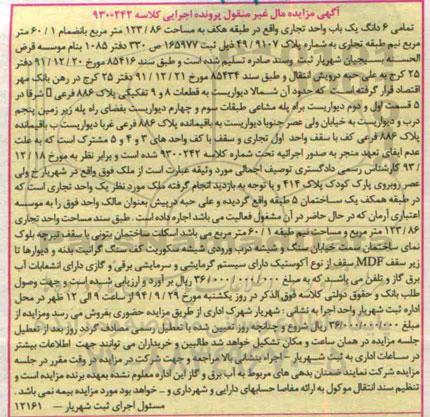 آگهی مزایده مال غیر منقول پرونده اجرایی کلاسه ۹۳۰۰۲۴۲
تمامی ۶ دانگ یک باب واحد تجاری واقع در طبقه هکف به مساحت ۱۲۳/۸۶ متر مربع بانضمام ۶۰/۱ متر
مربع نیم طبقه تجاری به شماره پلاک ۴۹/۹۱۰۷ ذیل ثبت ۱۶۵۹۷۷ ص ۳۳۰ دفتر ۱۰۸۵ بنام موسسه قرض
الحسنه بسیجیان شهریار ثبت و سند صادره تسلیم شده است و طبق سند ۸۵۴۱۶ مورخ ۹۱/۱۲/۲۰ دفتر
۲۵ کرج به علی حبه درویش انتقال و طبق سند ۸۵۴۳۴ مورخ ۹۱/۱۲/۲۱ دفتر ۲۵ کرج در رهن بانک مهر
اقتصاد قرار گرفته است. که حدود آن شمالا دیواریست به قطعات ۸ و ۹ تفکیکی پلاک ۸۸۶ فرعی شرقا در
۵ قسمت اول و دوم دیواریست براه پله مشاعی طبقات سوم و چهارم دیواریست بفضای راه پله زیر زمین پنجم
درب و دیواریست به خیابان ولی عصر جنوبا دیواریست به باقیمانده پلاک ۸۸۶ فرعی غربا دیواریست ب باقیمانده
پلاک ۸۸۶ فرعی کف با سقف واحد اول تجاری و سقف با کف واحد های ۳ و ۴ و ۵ مشترک است که به علت
عدم ایفای تعهد منجر به صدور اجرائیه تحت شماره کلاسه ۹۳۰۰۲۴۲ شده است و برابر نظر به مورخ ۱۲/۱۸
/۹۳ کارشناس رسمی دادگستری توصیف اجمالی مورد وثیقه عبارت است از ملک فوق واقع در شهریار خ ولی
عصر روبروی پارک کودک پلاک ۴۱۴ و با توجه به بازدید انجام گرفته ملک مورد نظر یک واحد تجاری است که
در طبقه همکف یک ساختمان ۵ طبقه واقع گردیده و علی حبه درویش بعنوان مالک واحد فوق را به موسسه
اعتباری آرمان که در حال حاضر در آن مشغول فعالیت می باشد اجاره داده است. طبق سند مساحت واحد تجاری
۱۲۳/۸۶ متر مربع و مساحت نیم طبقه ۶۰/۱ متر مربع می باشد اسکلت ساختمان بتونی با سقف تیرچه بلوک
نمای ساختمان سمت خیابان سنگ و شیشه درب ورودی شیشه سکوریت کف سنگ گرانیت بدنه و دیوارها تا
زیر سقف MDF سقف از نوع آکوستیک دارای سیستم گرمایشی و سرمایشی برقی و گازی دارای انشعابات آب
برق گاز و تلفن می باشد که به مبلغ ریال بر آورد و ارزیابی شده است و جهت وصول
طلب بانک و حقوق دولتی کلاسه فوق الذکر در روز یکشنبه مورخ ۹۴/۹/۲۹ از ساعت ۹ الی ۱۲ ظهر در محل
اداره ثبت شهریار واحد اجرا به نشانی: شهریار شهرک اداری از طریق مزایده حضوری بفروش می رسد و مزایده از
مبلغ ریال شروع و چنانچه روز تعیین شده با تعطیل رسمی مصادف گردد روز بعد از تعطیل
جلسه مزایده در همان ساعت و مکان تشکیل خواهد شد طالبین و خریداران می توانند جهت اطلاعات بیشتر
در ساعات اداری به ثبت شهریار - اجراء بنشانی بالا مراجعه و جهت شرکت در مزایده در وقت مقرر در جلسه
مزایده شرکت نمایند ضمنان بدهی های مربوط به آب برق و گاز این اداره معلوم نشده بعهده برنده مزایده است و
تنظیم سند انتقال موکول به ارائه مفاصا حسابهای دارایی و شهرداری و ... خواهد بود مورد مزایده بیمه نمی باشد.
مسئول اجرای ثبت شهریار – ۱۲۱۶۱